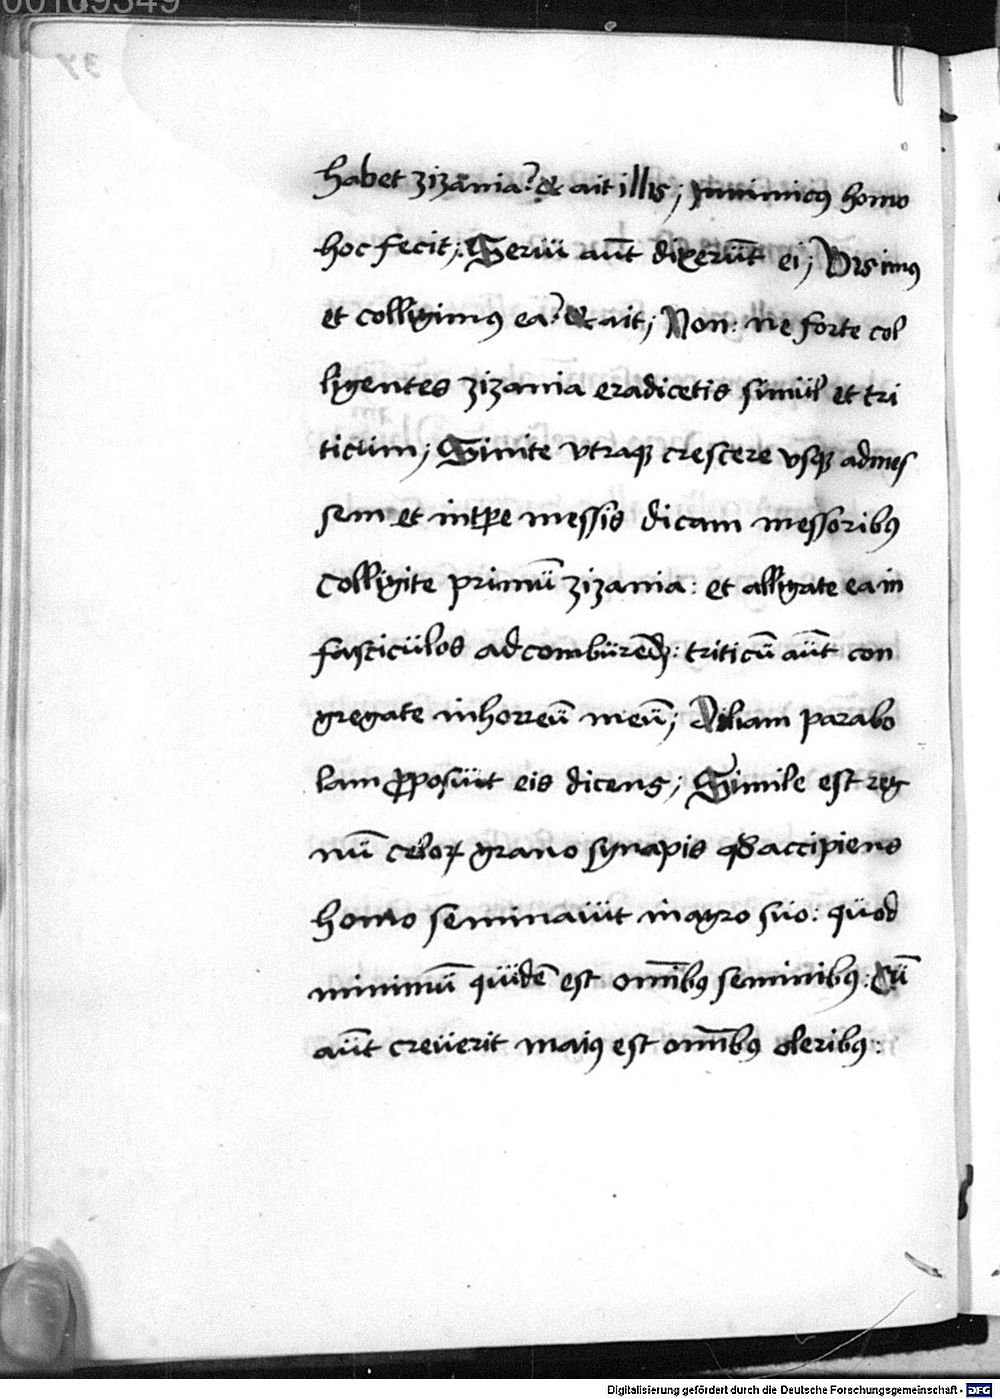 00109349
habet zizania? & ait illis; Inimicꝰ homo
hoc fecit; Serui aūt dixerūt ei; Vis imꝰ
et colligimꝰ ea? & ait; Non: ne forte col
ligentes zizania eradicetis simul et tri
ticum; Sinite vtraqꝫ crescere vsqꝫ ad mes
sem et in tꝑe messis dicam messoribꝰ
Colligite primū zizania: et alligate ea in
fasciculos ad comburēdꝫ: triticū aūt con
gregate in horreū meū; Aliam parabo
lam ꝓposuit eis dicens; Simile est reg
nū celoꝝ grano synapis qđ accipiens
homo seminauit in agro suo: quod
minimū quidē est om̄ibꝰ seminibꝰ: Cū
aūt creuerit maiꝰ est om̄ibꝰ oleribꝰ:
Digitalisierung gefördert durch die Deutsche Forschungsgemeinschaft - DFG